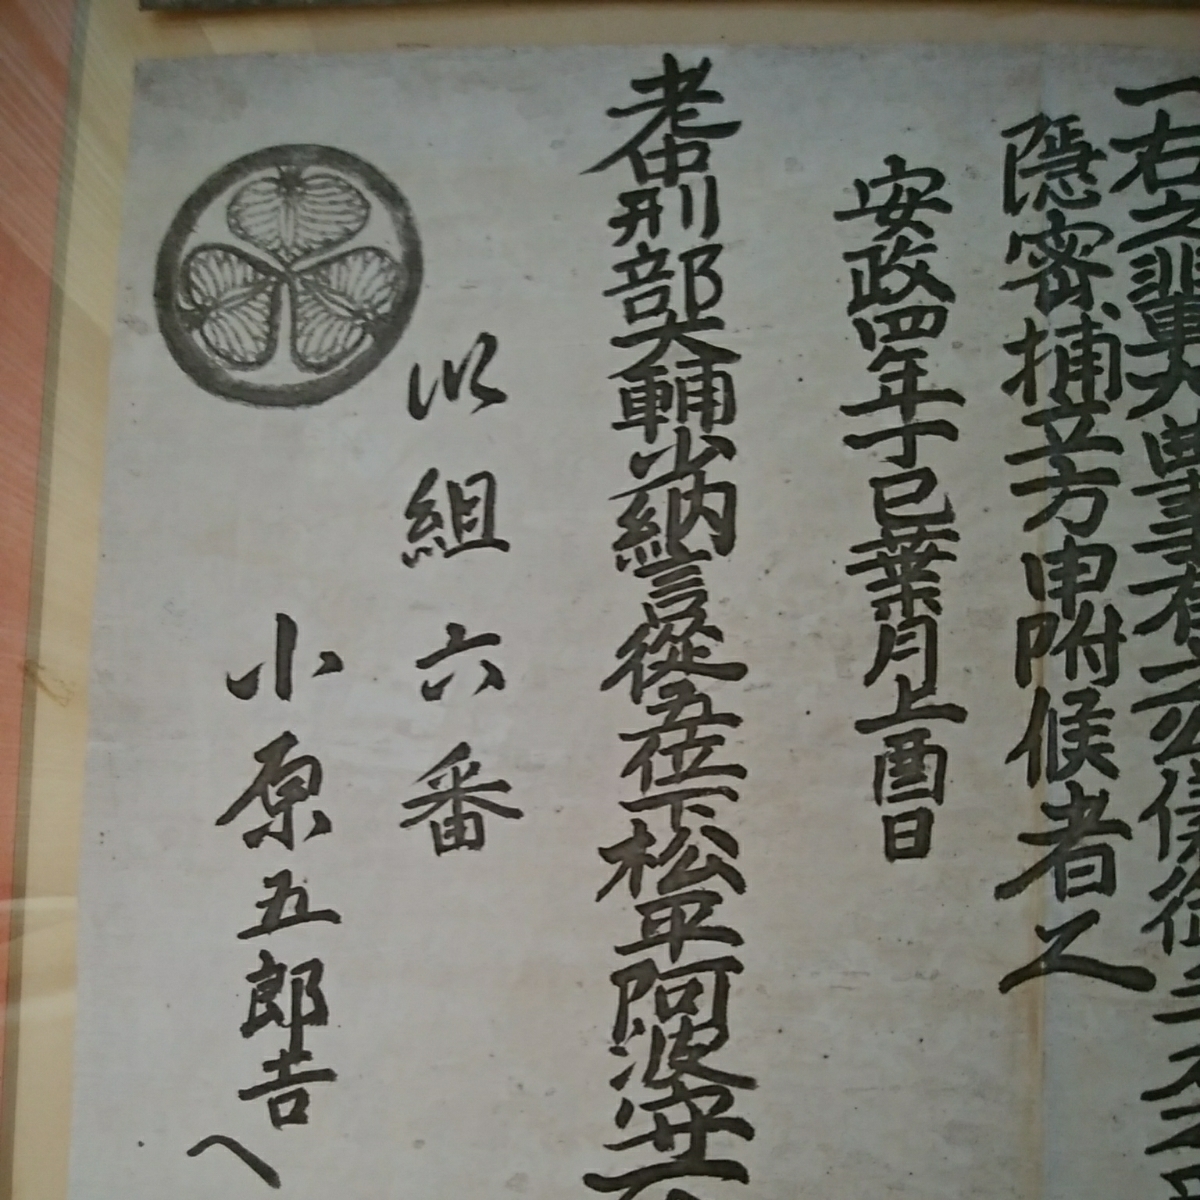 一右之輩
隠密捕立方申附候者也
安政四年丁巳葉月上酉日
老中刑部大輔少納言従五位下松平阿波守
以組六番
小原五郎吉へ